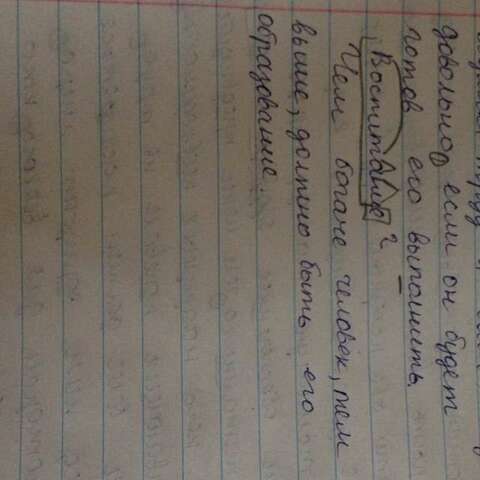 довольно если он будет
готов его выполнить.
Воспитание?
Чем богаче человек, тем
выше, должно быть его
образование.